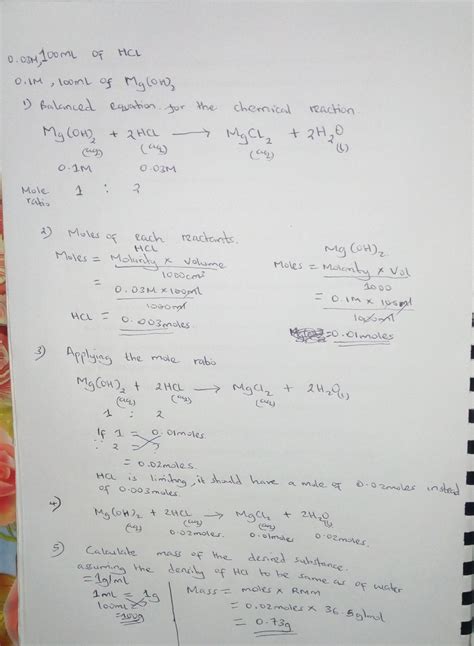 0.03M, 100ml of HCl
0.1M, 100ml of Mg(OH)2
1) Balanced equation for the chemical reaction
Mg(OH)2 + 2HCl → MgCl2 + 2H2O
(aq) (aq) (aq) (l)
0.1M 0.03M
Mole ratio 1 : 2
2) Moles of each reactants.
HCl
Moles = Molarity x Volume
1000cm³
= 0.03M x 100ml
1000ml
HCl = 0.003moles.
Mg(OH)2
Moles = Molarity x Vol
1000
= 0.1M x 100ml
1000ml
= 0.01moles
3) Applying the mole ratio
Mg(OH)2 + 2HCl → MgCl2 + 2H2O(l)
(aq) (aq) (aq)
1 : 2
If 1 = 0.01moles
∴ 2 = ?
= 0.02moles.
HCl is limiting, it should have a mole of 0.02moles instead
of 0.003moles.
4) Mg(OH)2 + 2HCl → MgCl2 + 2H2O
(aq) (aq) (aq) (l)
0.02moles. 0.01moles 0.02moles.
5) Calculate mass of the desired substance.
assuming the density of HCl to be same as of water
= 1g/ml
1ml = 1g
100ml = ?
= 100g
Mass = moles x RMM
= 0.02moles x 36.5g/mol
= 0.73g